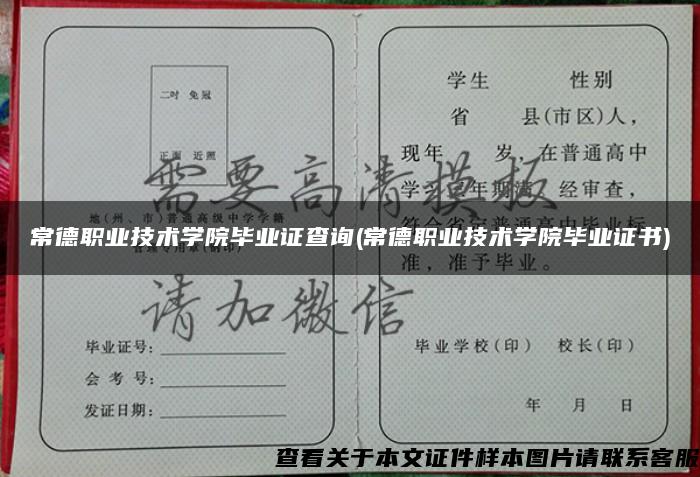 学生 性别
二吋 免冠
省 县(市区)人，
正面 近照
现年 岁，在普通高中
需要高清模板
学习 年期满，经审查，
地(州、市)普通高级中学学籍
常德职业技术学院毕业证查询(常德职业技术学院毕业证书)
准，准予毕业。
请加微信
毕业证号：
毕业学校(印) 校长(印)
会考号：
发证日期：
年 月 日
查看关于本文证件样本图片请联系客服